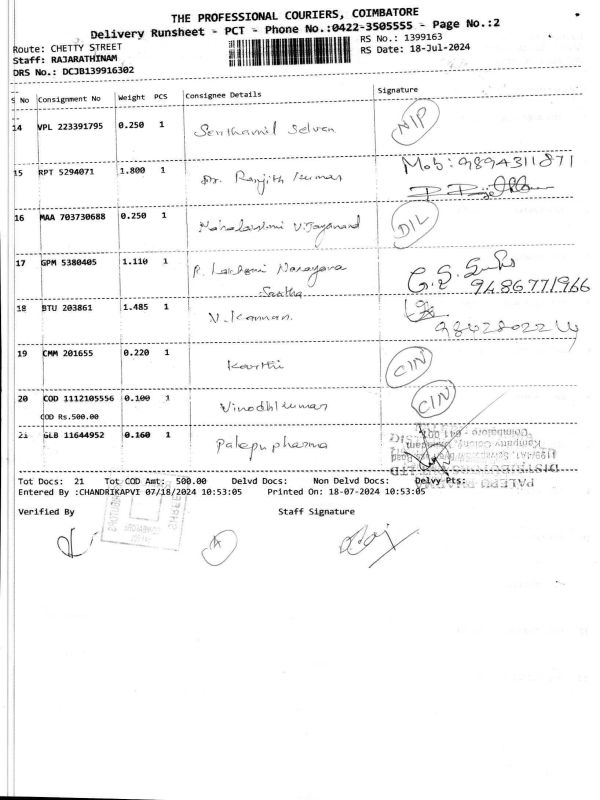 THE PROFESSIONAL COURIERS, COIMBATORE
Delivery Runsheet - PCT - Phone No.:0422-3505555 - Page No.:2
Route: CHETTY STREET RS No.: 1399163
Staff: RAJARATHINAM RS Date: 18-Jul-2024
DRS No.: DCJB139916302
S No Consignment No Weight PCS Consignee Details Signature
14 VPL 223391795 0.250 1 Senthamil Selvan NIP
15 RPT 5294071 1.800 1 Dr. Ranjith Kumar Mob: 9894311871
16 MAA 703730688 0.250 1 Mahalakshmi Vijayanand DIL
17 GPM 5380405 1.110 1 R. Lakshmi Narayana
9486771966
18 BTU 203861 1.485 1 V. Kannan
9842802224
19 CMM 201655 0.220 1 Karthi CIN
20 COD 1112105556 0.100 1 Vinodhkumar CIN
COD Rs.500.00
21 GLB 11644952 0.160 1 Palepu pharma
Coimbatore - 641 001
PALEPU PHARMA
Tot Docs: 21 Tot COD Amt: 500.00 Delvd Docs: Non Delvd Docs: Delvy Pts:
Entered By :CHANDRIKAPVI 07/18/2024 10:53:05 Printed On: 18-07-2024 10:53:05
Verified By Staff Signature
A